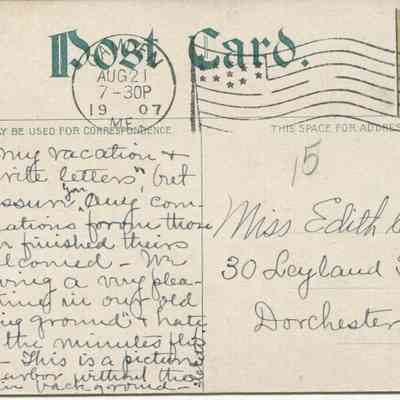 Post Card.
AUG 21
7-30P
19 07
ME.
AY BE USED FOR CORRESPONDENCE
THIS SPACE FOR ADDRES
15
my vacation +
write letters", but
you
assure any com-
ations from those
finished theirs
elcomed - We
ving a very plea-
time in our old
ing ground" + hate
the minutes fly
- This is a picture
arbor without the
in background -
Miss Edith
30 Leyland S
Dorchester